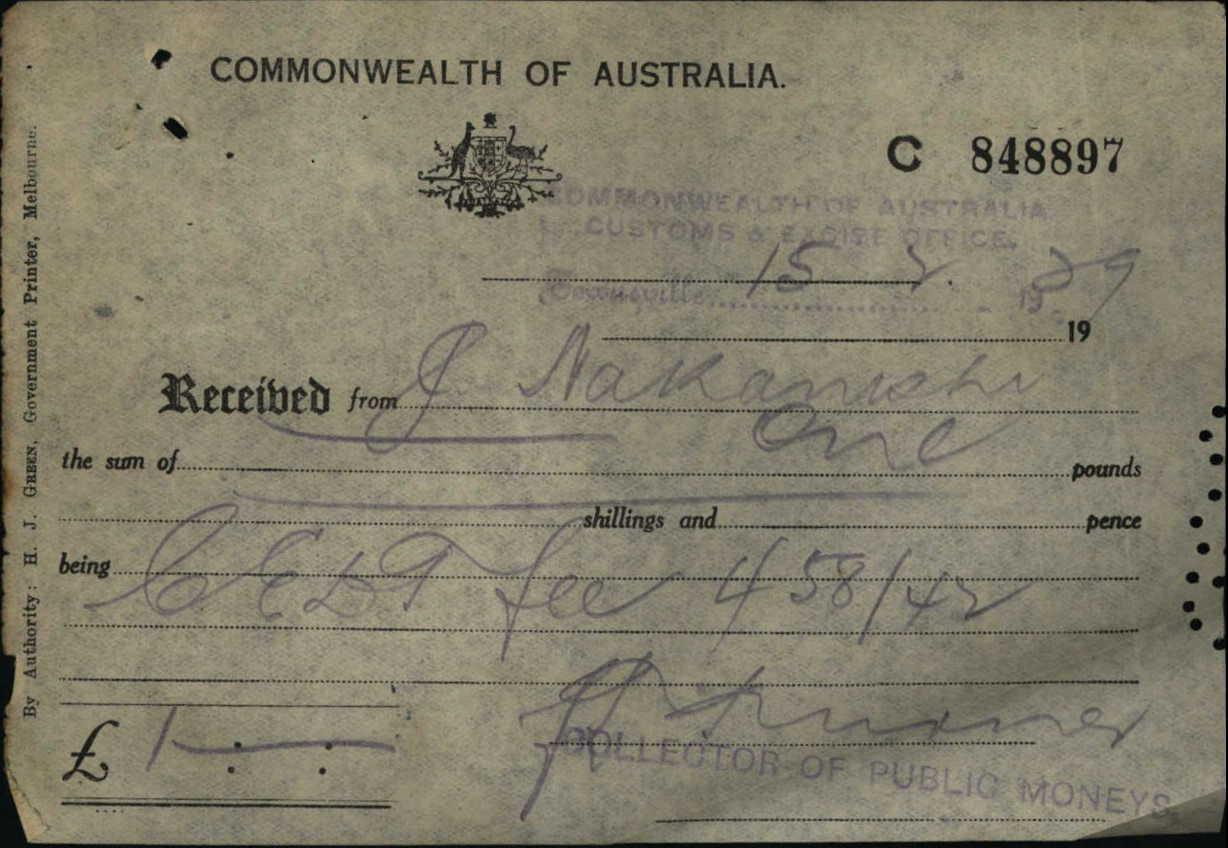 COMMONWEALTH OF AUSTRALIA.
C 848897
COMMONWEALTH OF AUSTRALIA
CUSTOMS & EXCISE OFFICE.
Townsville 15 2 1939
19
Received from J Nakanishi
the sum of One pounds
shillings and pence
being CEDT fee 458/42
£ 1
COLLECTOR OF PUBLIC MONEYS
By Authority: H. J. GREEN, Government Printer, Melbourne.